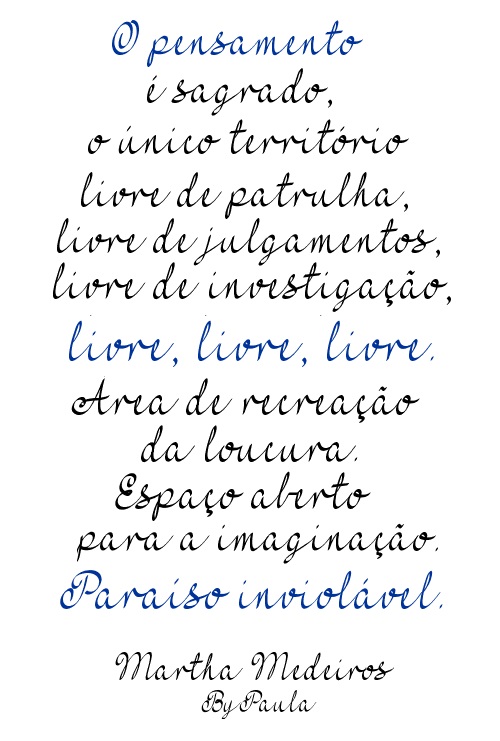 O pensamento
é sagrado,
o único território
livre de patrulha,
livre de julgamentos,
livre de investigação,
livre, livre, livre.
Area de recreação
da loucura.
Espaço aberto
para a imaginação.
Paraíso inviolável.
Martha Medeiros
By Paula